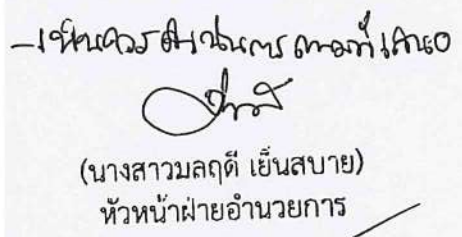 - เห็นควรดำเนินการตามที่เสนอ
(นางสาวมลฤดี เย็นสบาย)
หัวหน้าฝ่ายอำนวยการ